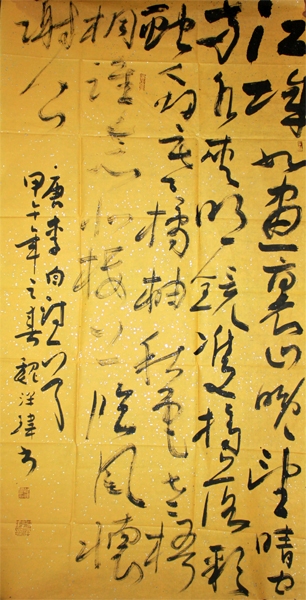 江城如画裏山晚望晴空
两水夹明镜双桥落彩
虹人烟寒橘柚秋色老梧
桐谁念北楼上临风懷
谢公
唐李白诗
甲午年之春